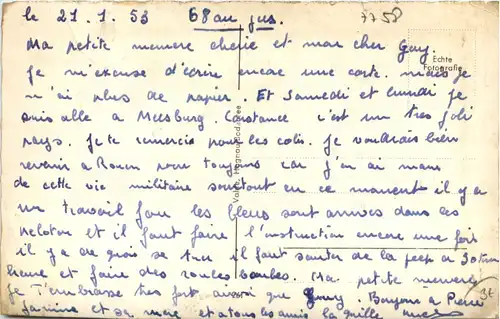 le 21.1.53 68 au jus.
7758
Ma petite memere cherie et mon cher Guy.
Echte Fotografie
Je m'excuse d'écrire encore une carte. mais je
n'ai plus de papier. Et Samedi et lundi je
suis allé a Meesburg. Constance c'est un tres joli
pays. Je te remercie pour les colis. Je voudrais bien
revenir a Rouen pour toujours car j'en ai marre
de cette vie militaire surtout en ce moment il y a
un travail fou les bleus sont arrives dans les
peloton et il faut faire l'instruction encore une fois
il y a de quoi se tuer il faut sauter de la jeep a 30 km
heure et faire des roules boules. Ma petite memere
je t'embrasse tres fort aussi que Guy. Bonjour a Pierre
Janine et sa mere et a tous les amis la famille